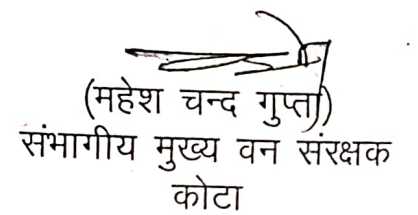 (महेश चन्द गुप्ता)
संभागीय मुख्य वन संरक्षक
कोटा